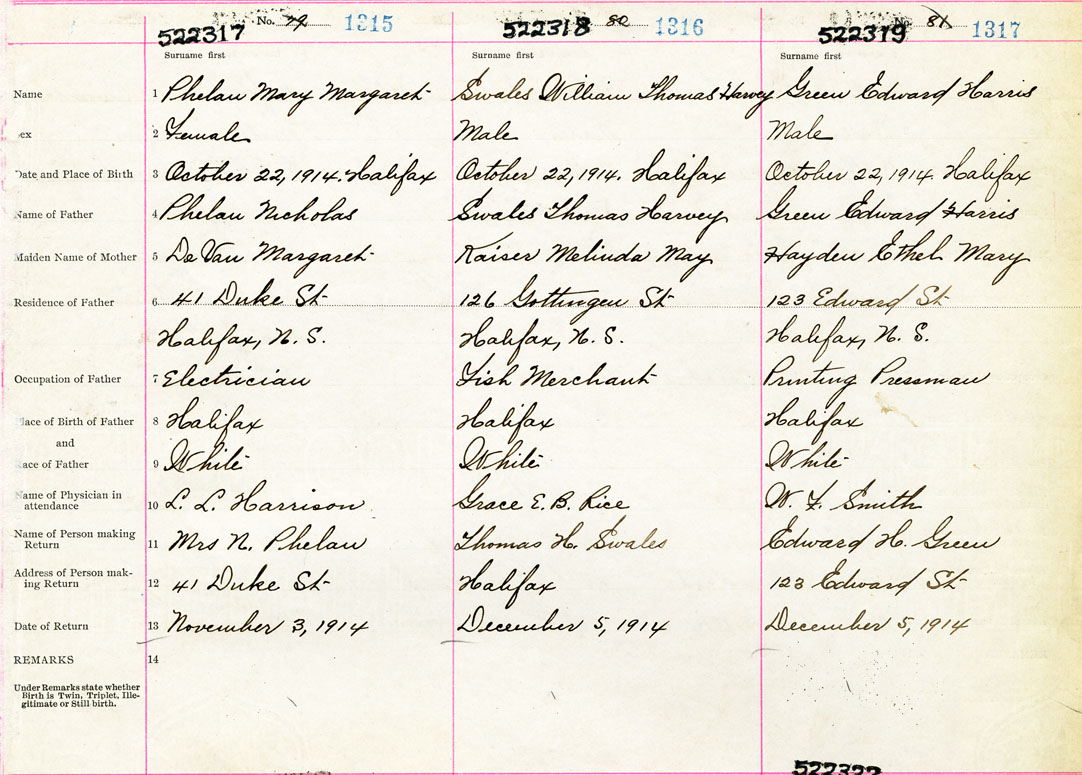 No. 79 1315 80 1316 No. 81 1317
522317 522318 522319
Surname first Surname first Surname first
Name 1 Phelan Mary Margaret Swales William Thomas Harvey Green Edward Harris
ex 2 Female Male Male
Date and Place of Birth 3 October 22, 1914. Halifax October 22, 1914. Halifax October 22, 1914 Halifax
Name of Father 4 Phelan Nicholas Swales Thomas Harvey Green Edward Harris
Maiden Name of Mother 5 De Van Margaret Kaiser Melinda May Hayden Ethel Mary
Residence of Father 6 41 Duke St 126 Gottingen St 123 Edward St
Halifax, N. S. Halifax, N. S. Halifax, N. S.
Occupation of Father 7 Electrician Fish Merchant Printing Pressman
lace of Birth of Father 8 Halifax Halifax Halifax
and
ace of Father 9 White White White
Name of Physician in
attendance 10 L. L. Harrison Grace E. B. Rice W. F. Smith
Name of Person making
Return 11 Mrs N. Phelan Thomas H. Swales Edward H. Green
Address of Person mak-
ing Return 12 41 Duke St Halifax 123 Edward St
Date of Return 13 November 3, 1914 December 5, 1914 December 5, 1914
REMARKS 14
Under Remarks state whether
Birth is Twin, Triplet, Ille-
gitimate or Still birth.
522322